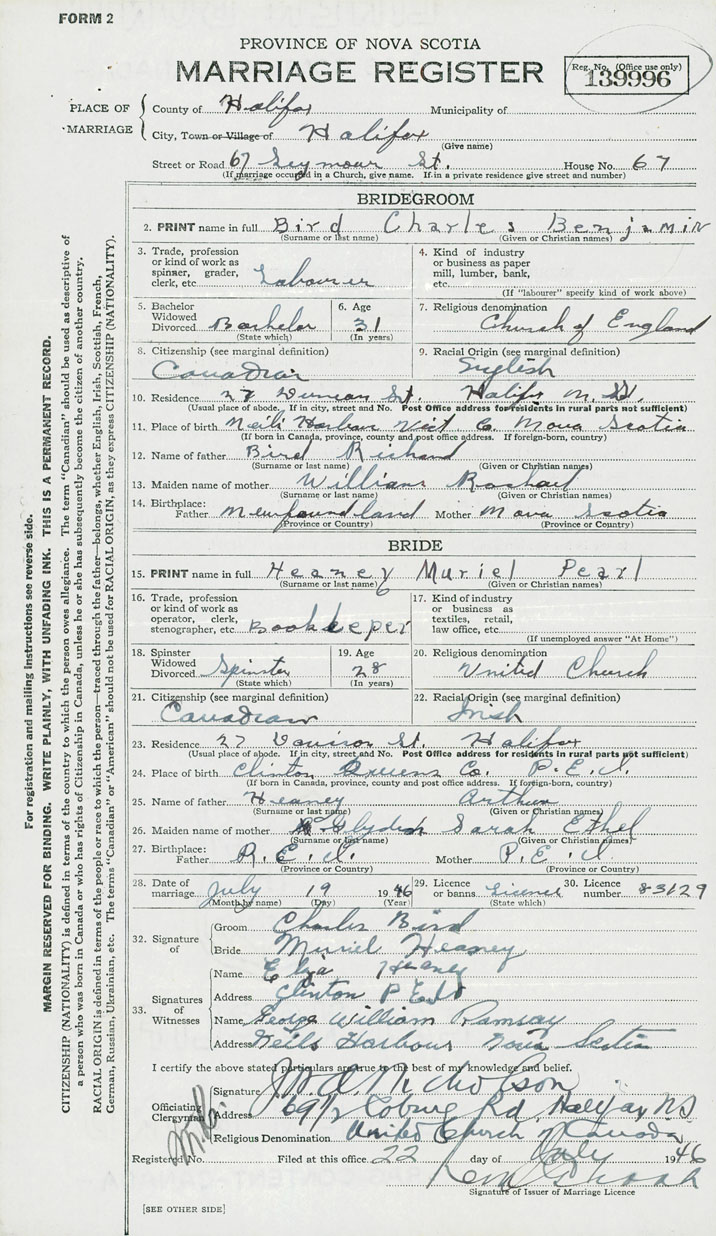 FORM 2
PROVINCE OF NOVA SCOTIA
MARRIAGE REGISTER
Reg. No. (Office use only)
139996
PLACE OF MARRIAGE
County of Halifax Municipality of
City, Town or Village of Halifax
(Give name)
Street or Road 67 Seymour St. House No. 67
(If marriage occured in a Church, give name. If in a private residence give street and number)
BRIDEGROOM
2. PRINT name in full Bird Charles Benjamin
(Surname or last name) (Given or Christian names)
3. Trade, profession or kind of work as spinner, grader, clerk, etc. Labourer
4. Kind of industry or business as paper mill, lumber, bank, etc.
(If "labourer" specify kind of work above)
5. Bachelor Widowed Divorced Bachelor
(State which)
6. Age 31
(In years)
7. Religious denomination
Church of England
8. Citizenship (see marginal definition)
Canadian
9. Racial Origin (see marginal definition)
English
10. Residence 27 Duncan St. Halifax N.S.
(Usual place of abode. If in city, street and No. Post Office address for residents in rural parts not sufficient)
11. Place of birth Neil's Harbour Vict Co. Nova Scotia
(If born in Canada, province, county and post office address. If foreign-born, country)
12. Name of father Bird Richard
(Surname or last name) (Given or Christian names)
13. Maiden name of mother Williams Rachael
(Surname or last name) (Given or Christian names)
14. Birthplace: Father Newfoundland Mother Nova Scotia
(Province or Country) (Province or Country)
BRIDE
15. PRINT name in full Heaney Muriel Pearl
16. Trade, profession or kind of work as operator, clerk, stenographer, etc. Bookkeeper
17. Kind of industry or business as textiles, retail, law office, etc.
(If unemployed answer "At Home")
18. Spinster Widowed Divorced Spinster
(State which)
19. Age 28
(In years)
20. Religious denomination
United Church
21. Citizenship (see marginal definition)
Canadian
22. Racial Origin (see marginal definition)
Irish
23. Residence 27 St. Halifax
(Usual place of abode. If in city, street and No. Post Office address for residents in rural parts not sufficient)
24. Place of birth Clinton Queens Co. P.E.I.
(If born in Canada, province, county and post office address. If foreign-born, country)
25. Name of father Heaney Arthur
(Surname or last name) (Given or Christian names)
26. Maiden name of mother Sarah Ethel
(Surname or last name) (Given or Christian names)
27. Birthplace: Father P.E.I. Mother P.E.I.
(Province or Country) (Province or Country)
28. Date of marriage July 19 1946
(Month by name) (Day) (Year)
29. Licence or banns License
(State which)
30. Licence number 83129
32. Signature of
Groom Charles Bird
Bride Muriel Heaney
33. Signatures of Witnesses
Name Heaney
Address Clinton P E I
Name George William Ramsay
Address Neils Harbour Nova Scotia
I certify the above stated particulars are true to the best of my knowledge and belief.
Officiating Clergyman
Signature Nicholson
Address 69 1/2 Coburg Rd Halifax NS
Religious Denomination United Church of Canada
Registered No. Filed at this office 22 day of July 1946
Signature of Issuer of Marriage Licence
[SEE OTHER SIDE]
For registration and mailing instructions see reverse side.
MARGIN RESERVED FOR BINDING. WRITE PLAINLY, WITH UNFADING INK. THIS IS A PERMANENT RECORD.
CITIZENSHIP (NATIONALITY) is defined in terms of the country to which the person owes allegiance. The term "Canadian" should be used as descriptive of
a person who was born in Canada or who has rights of Citizenship in Canada, unless he or she has subsequently become the citizen of another country.
RACIAL ORIGIN is defined in terms of the people or race to which the person—traced through the father—belongs, whether English, Irish, Scottish, French,
German, Russian, Ukrainian, etc. The terms "Canadian" or "American" should not be used for RACIAL ORIGIN, as they express CITIZENSHIP (NATIONALITY).